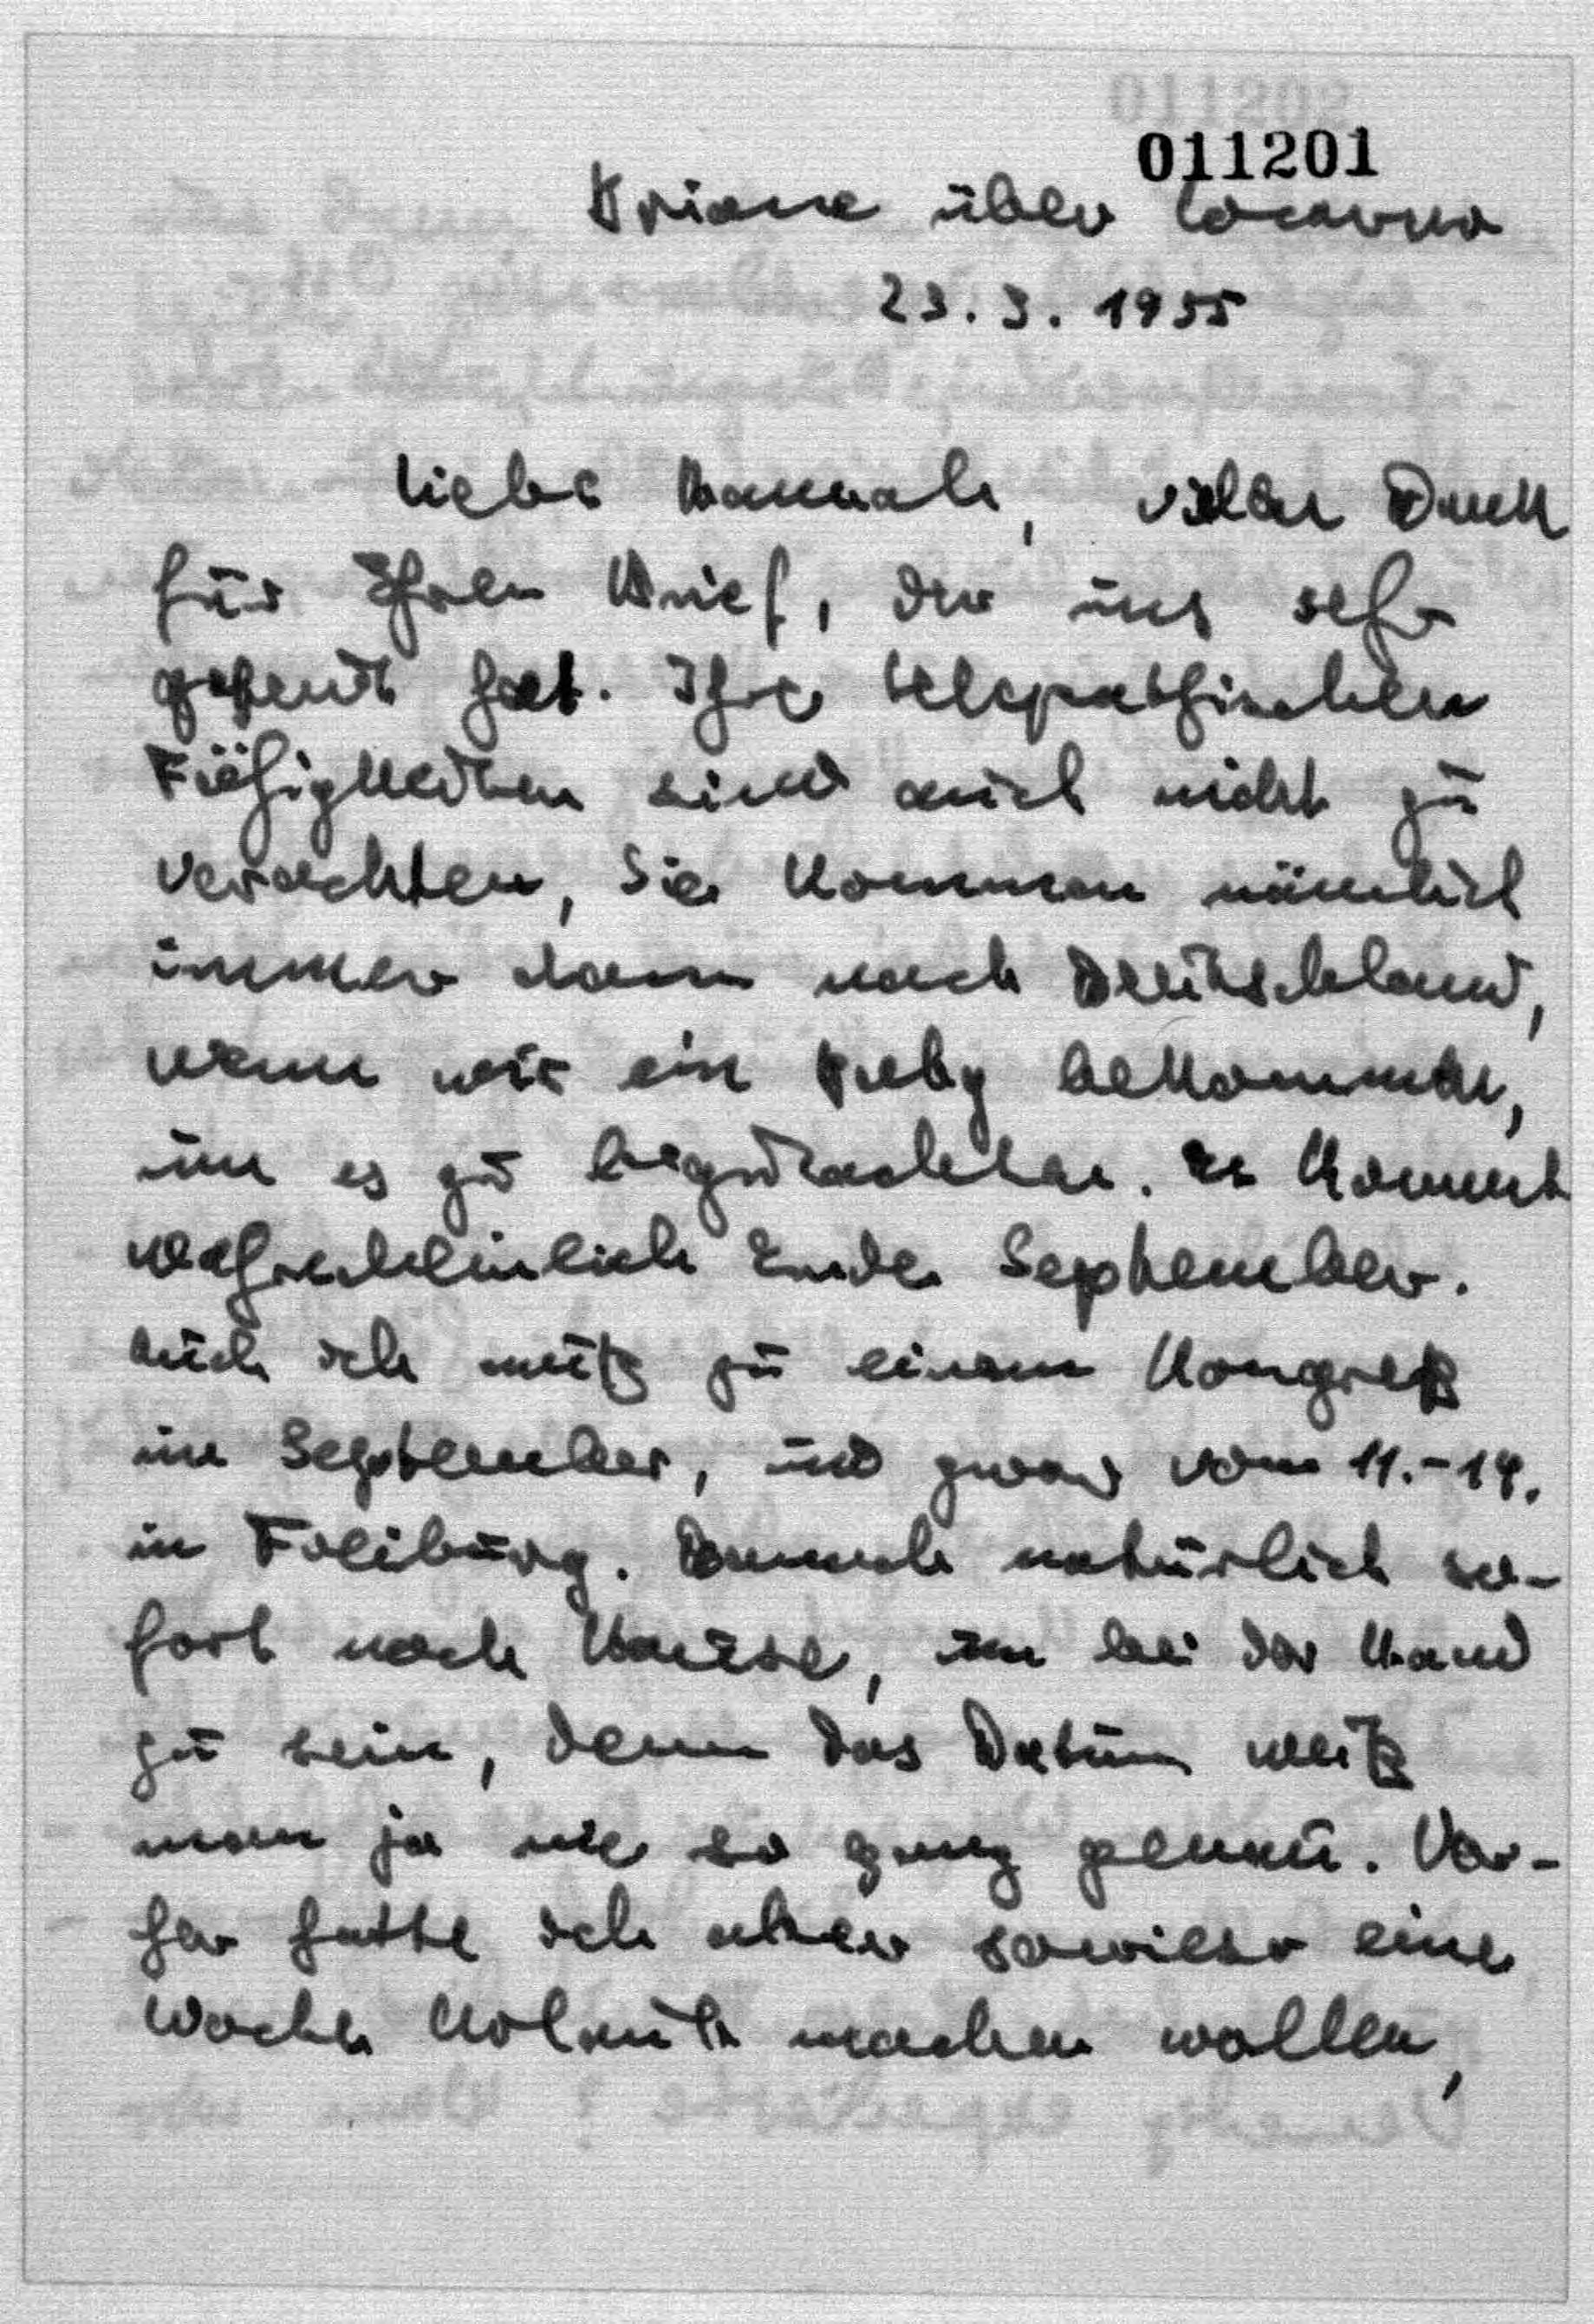 011201
Briane über Locarno
23.3.1955
Liebe Hannah, vielen Dank
für Ihren Brief, der uns sehr
gefreut hat. Ihre telepathischen
Fähigkeiten sind auch nicht zu
verachten, Sie kommen nämlich
immer dann nach Deutschland,
wenn wir ein Baby bekommen,
um es zu begutachten. Es kommt
wahrscheinlich Ende September.
Auch ich muß zu einem Kongreß
im September, und zwar vom 11.-14.
in Freiburg. Danach natürlich so-
fort nach Hause, um bei der Hand
zu sein, denn das Datum weiß
man ja nie so ganz genau. Vor-
her hatte ich aber sowieso eine
Woche machen wollen,